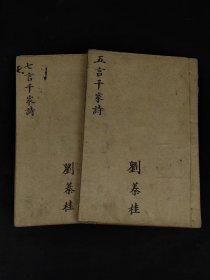 五言千家詩
劉慕桂
七言千家詩
劉慕桂